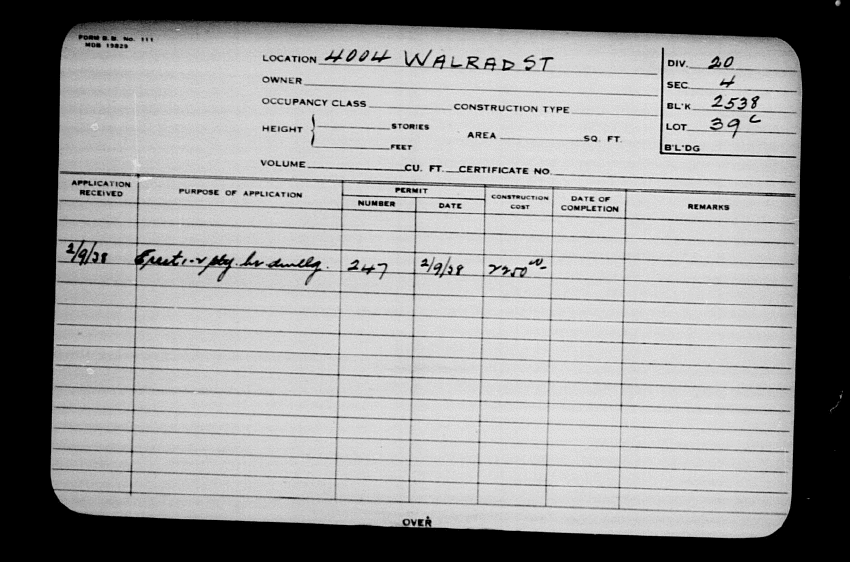 FORM B.B. No. 111
MDB 13829
LOCATION 4004 WALRAD ST
OWNER
OCCUPANCY CLASS CONSTRUCTION TYPE
HEIGHT STORIES AREA SQ. FT.
FEET
VOLUME CU. FT. CERTIFICATE NO.
DIV. 20
SEC. 4
BL'K 2538
LOT 39 C
B'L'DG
APPLICATION RECEIVED PURPOSE OF APPLICATION PERMIT NUMBER DATE CONSTRUCTION COST DATE OF COMPLETION REMARKS
2/9/38 Erect 1-2 sty. br dwellg. 247 2/9/38 2250 00
OVER